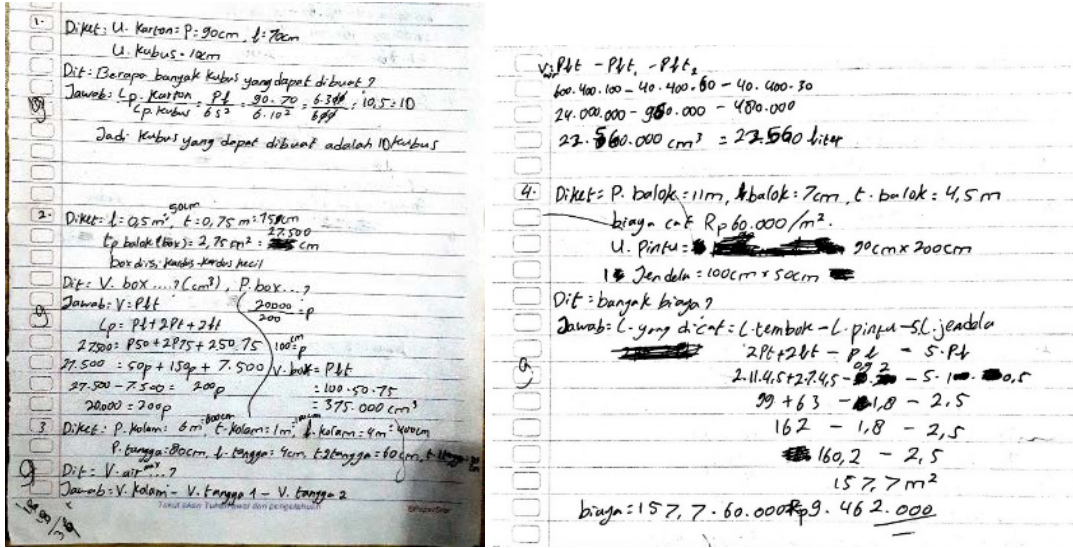 1. Diket: U. Karton = P = 90cm, l = 70cm
U. kubus = 10cm
Dit: Berapa banyak kubus yang dapat dibuat?
Jawab: Lp. karton / Lp. kubus = Pl / 6s² = 90.70 / 6.10² = 6.300 / 600 = 10,5 = 10
Jadi kubus yang dapat dibuat adalah 10 kubus
2. Diket: l = 0,5 m = 50cm, t = 0,75 m = 75cm
Lp balok (box) = 2,75 m² = 27.500 cm
box diisi kardus-kardus kecil
Dit = V. box ....? (cm³), P. box...?
Jawab: V = Plt
Lp = Pl + 2Pt + 2lt
27500 = P50 + 2P75 + 250.75
27.500 = 50p + 150p + 7.500
27.500 - 7.500 = 200p
20.000 = 200p
20000 / 200 = p
100 cm = p
V. box = Plt
= 100.50.75
= 375.000 cm³
3 Diket: P. kolam = 6m = 600cm, t. kolam = 1m, l. kolam = 4m = 400cm
P. tangga = 80cm, l. tangga = 4cm, t 2 tangga = 60cm,
Dit = V. air ...?
Jawab = V. kolam - V. tangga 1 - V. tangga 2
9
Takut akan Tuhan awal dari pengetahuan
V air = Plt - Plt₁ - Plt₂
600.400.100 - 40.400.60 - 40.400.30
24.000.000 - 960.000 - 480.000
22.560.000 cm³ = 22.560 liter
4. Diket = P. balok = 11m, l balok = 7cm, t. balok = 4,5 m
biaya cat Rp 60.000/m².
U. Pintu = 90cm x 200cm
1 Jendela = 100cm x 50cm
Dit = banyak biaya?
Jawab = L. yang dicat = L. tembok - L. pintu - 5 L. jendela
2Pt + 2lt - pl - 5. Pl
2.11.4,5 + 2.7.4,5 - 0,9.2 - 5.1.0,5
99 + 63 - 1,8 - 2,5
162 - 1,8 - 2,5
160,2 - 2,5
157,7 m²
biaya = 157,7.60.000 = Rp 9.462.000
9